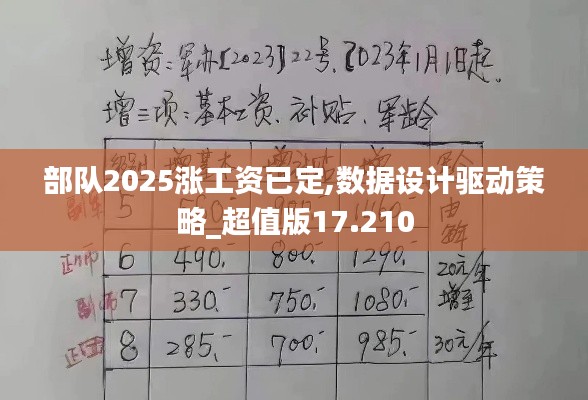 增资:军办[2023]22号.2023年1月1日起.
增三项:基本工资、补贴、军龄
部队2025涨工资已定,数据设计驱动策
略_超值版17.210
副军 5
正师 6 490.- 800.- 1290.- 20元/年
副师 7 330.- 750.- 1080.- 增至
正团 8 285.- 700.- 985.- 30元/年